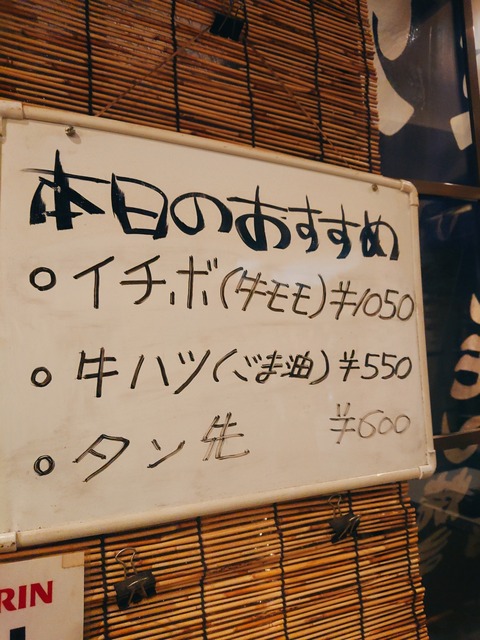 本日のおすすめ
○イチボ(牛モモ)¥1050
○牛ハツ(ごま油)¥550
○タン先 ¥600
RIN